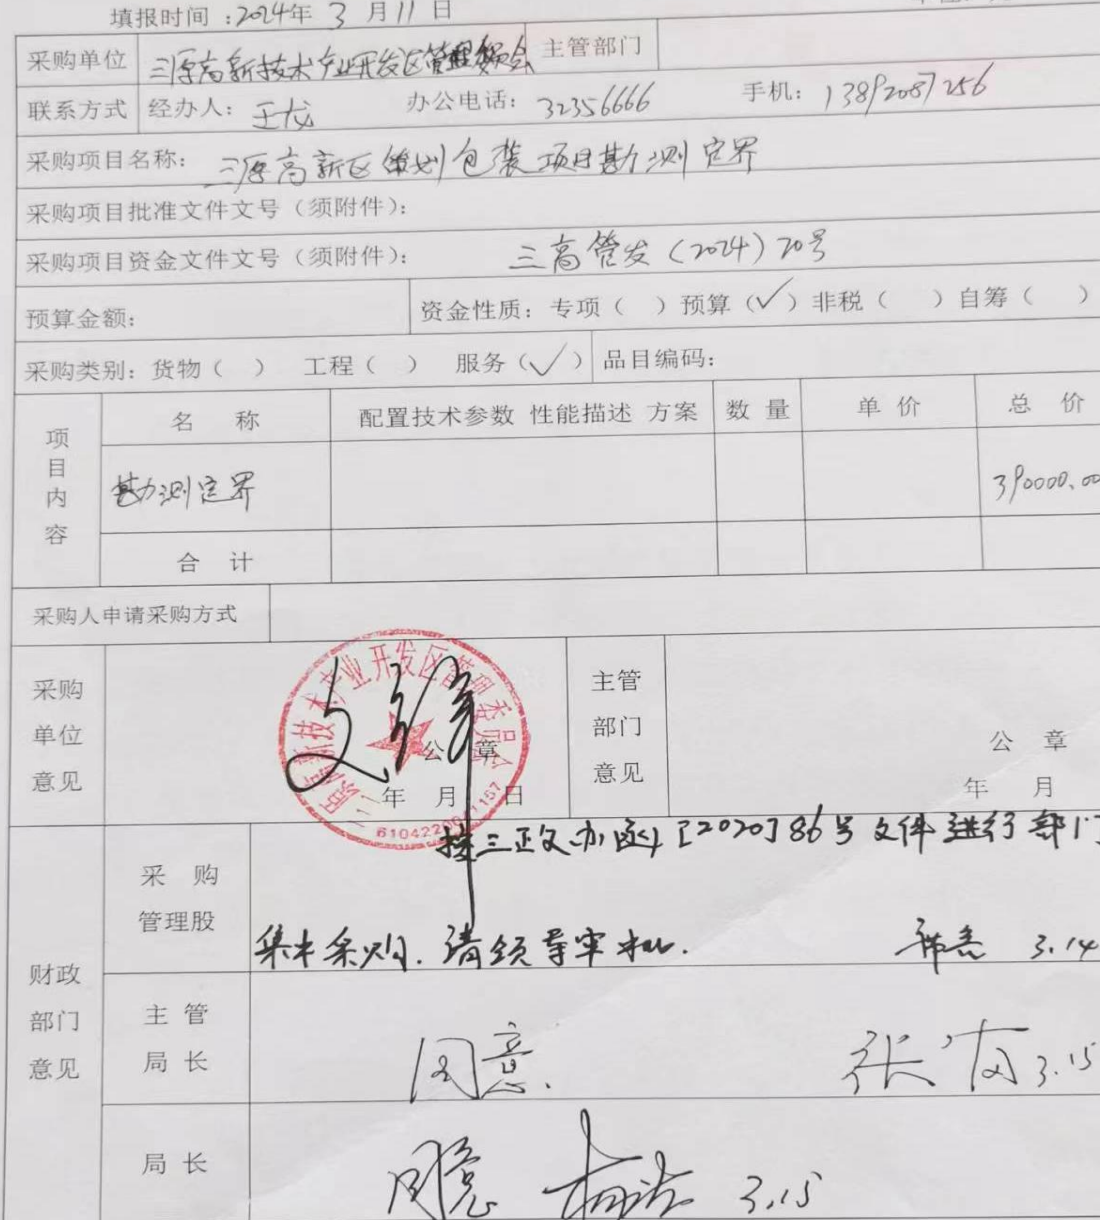 填报时间：2024年 3 月 11 日
采购单位 三原高新技术产业开发区管理委员会 主管部门
联系方式 经办人： 王龙 办公电话： 32356666 手机： 13892087256
采购项目名称： 三原高新区策划包装项目勘测定界
采购项目批准文件文号（须附件）：
采购项目资金文件文号（须附件）： 三高管发（2024）20号
预算金额： 资金性质：专项（ ）预算（✓）非税（ ）自筹（ ）
采购类别：货物（ ） 工程（ ） 服务（✓） 品目编码：
项目内容 名 称 配置技术参数 性能描述 方案 数 量 单 价 总 价
勘测定界 390000.00
合 计
采购人申请采购方式
采购单位意见 公 章 主管部门意见 公 章
年 月 日 年 月
三原高新技术产业开发区管理委员会
按三政办函[2020]86号文件进行部门
财政部门意见 采 购 管理股 集中采购.请领导审批. 3.14
主 管 局 长 同意. 张 3.15
局 长 同意 3.15